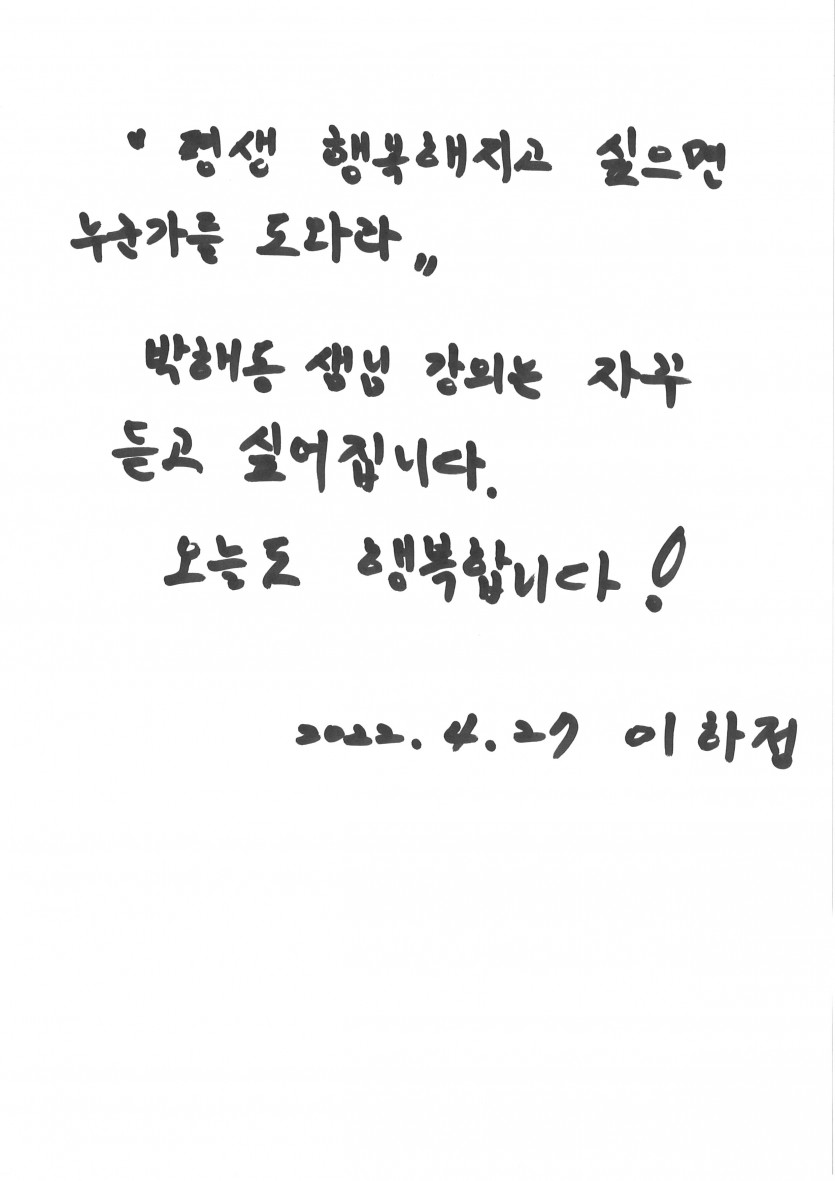 " 평생 행복해지고 싶으면
누군가를 도와라 "
박해동 샘님 강의는 자꾸
듣고 싶어집니다.
오늘도 행복합니다!
2022. 4. 27 이하정